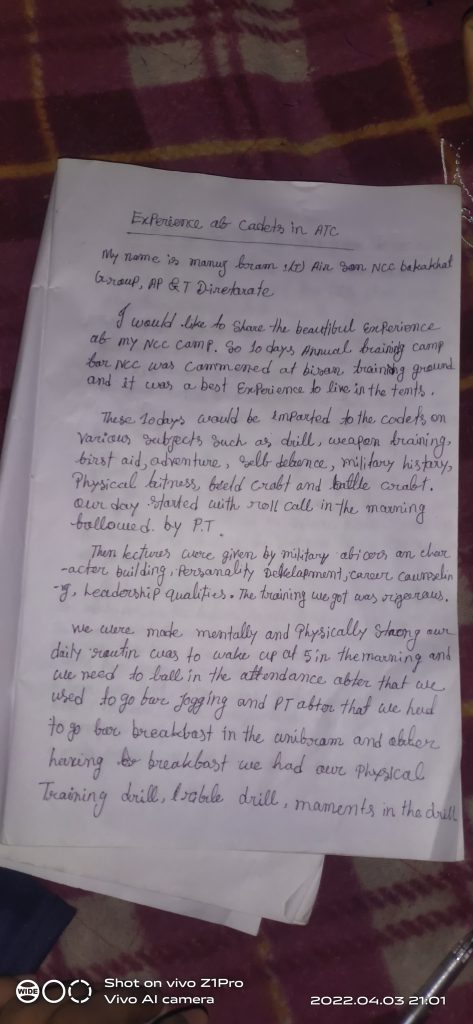 Experience ab Cadets in ATC
My name is manuz boram 1(I) Air san NCC bakakhat
Group, AP & T Diretarate
I would like to Share the beautibul Experience
ab my NCC camp. So 10 days Annual training camp
bar NCC was cammened at bisan training ground
and it was a best Experience to live in the tents.
These 10days would be imparted to the cadets on
various subjects such as drill, weapon training,
birst aid, adventure, selb debence, military histary,
Physical bitness, beeld crabt and battle crabt.
our day started with roll call in the marning
ballowed by P.T.
Then lectures were given by military abicers an char
-acter building, Personality Development, career counselin
-g, Leadership qualities. The training we got was rigerous.
we were made mentally and Physically Strong our
daily routin was to wake up at 5 in the marning and
we need to ball in the attendance abter that we
used to go bar Jogging and PT abter that we had
to go bar breakbast in the unibaram and abter
having breakbast we had our Physical
Training drill, drill, maments in the drill
Shot on vivo Z1Pro
WIDE
Vivo AI camera
2022.04.03 21:01